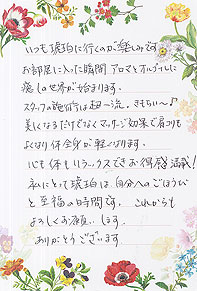 いつも琥珀に行くのが楽しみです。
お部屋に入った瞬間 アロマとオルゴールに
癒しの世界が始まります。
スタッフの施術は超一流。きもちい〜♪
美しくなるだけでなくマッサージ効果で肩コリも
よくなり体全身が軽くなります。
心も体もリラックスできお得感満載!
私にとって琥珀は、自分へのごほうび
と至福の時間です。これからも
よろしくお願いします。
ありがとうございます